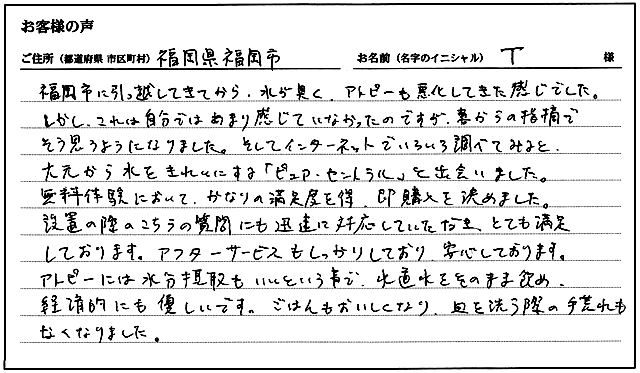 お客様の声
ご住所（都道府県 市区町村） 福岡県福岡市 お名前（名字のイニシャル） T 様
福岡市に引っ越してきてから、水が臭く、アトピーも悪化してきた感じでした。
しかし、これは自分ではあまり感じていなかったのですが、妻からの指摘で
そう思うようになりました。そしてインターネットでいろいろ調べてみると、
大元から水をきれいにする「ピュア・セントラル」と出会いました。
無料体験において、かなりの満足度を得、即購入を決めました。
設置の際のこちらの質問にも迅速に対応していただき、とても満足
しております。アフターサービスもしっかりしており、安心しております。
アトピーには水分摂取もいいという事で、水道水をそのまま飲め、
経済的にも優しいです。ごはんもおいしくなり、皿を洗う際の手荒れも
なくなりました。